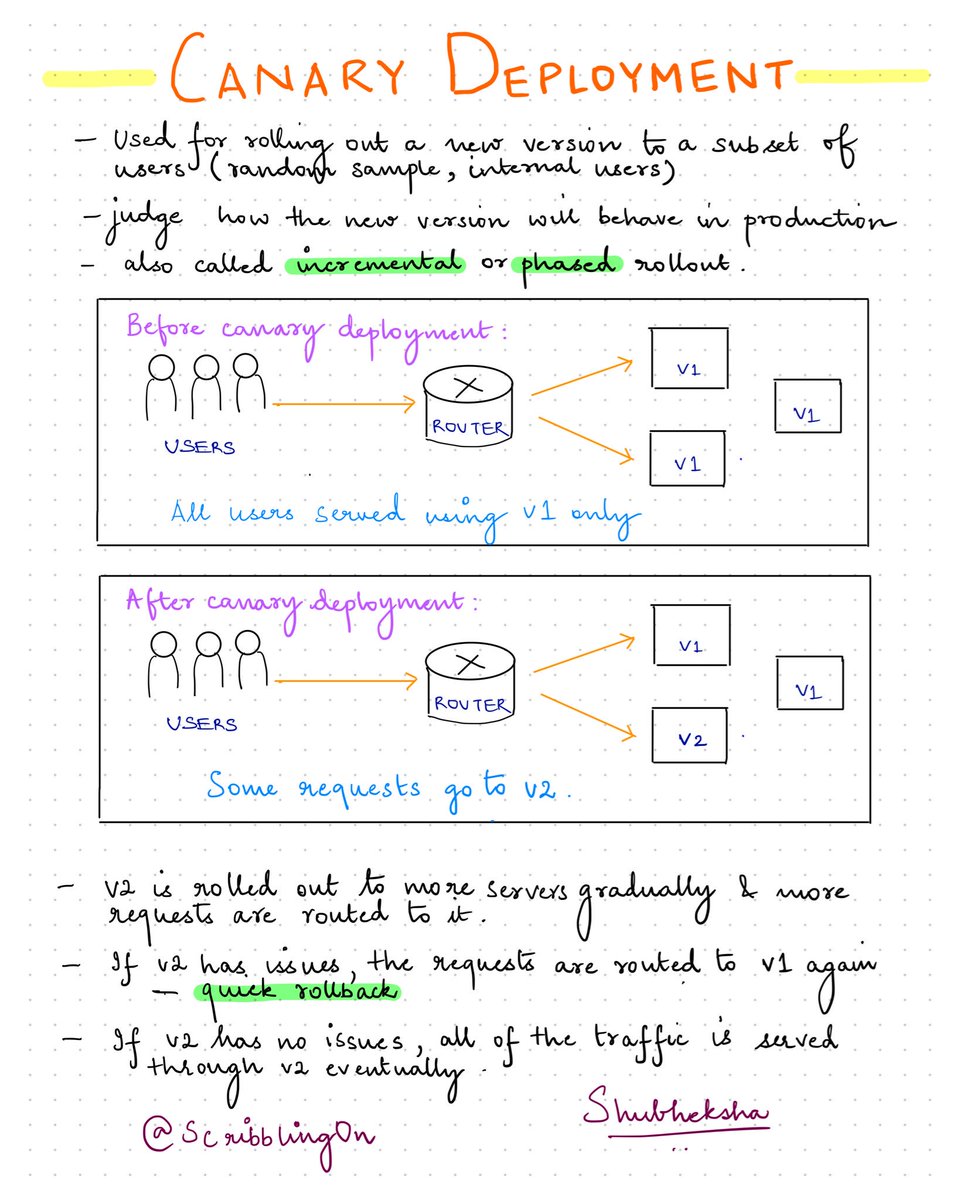 CANARY DEPLOYMENT
- Used for rolling out a new version to a subset of
users (random sample, internal users)
- judge how the new version will behave in production
- also called incremental or phased rollout.
Before canary deployment:
V1
V1
ROUTER
USERS
V1
All users served using v1 only
After canary deployment:
V1
V1
ROUTER
USERS
V2
Some requests go to v2.
- v2 is rolled out to more servers gradually & more
requests are routed to it.
- If v2 has issues, the requests are routed to v1 again
- quick rollback
- If v2 has no issues, all of the traffic is served
through v2 eventually.
Shubheksha
@ScribblingOn